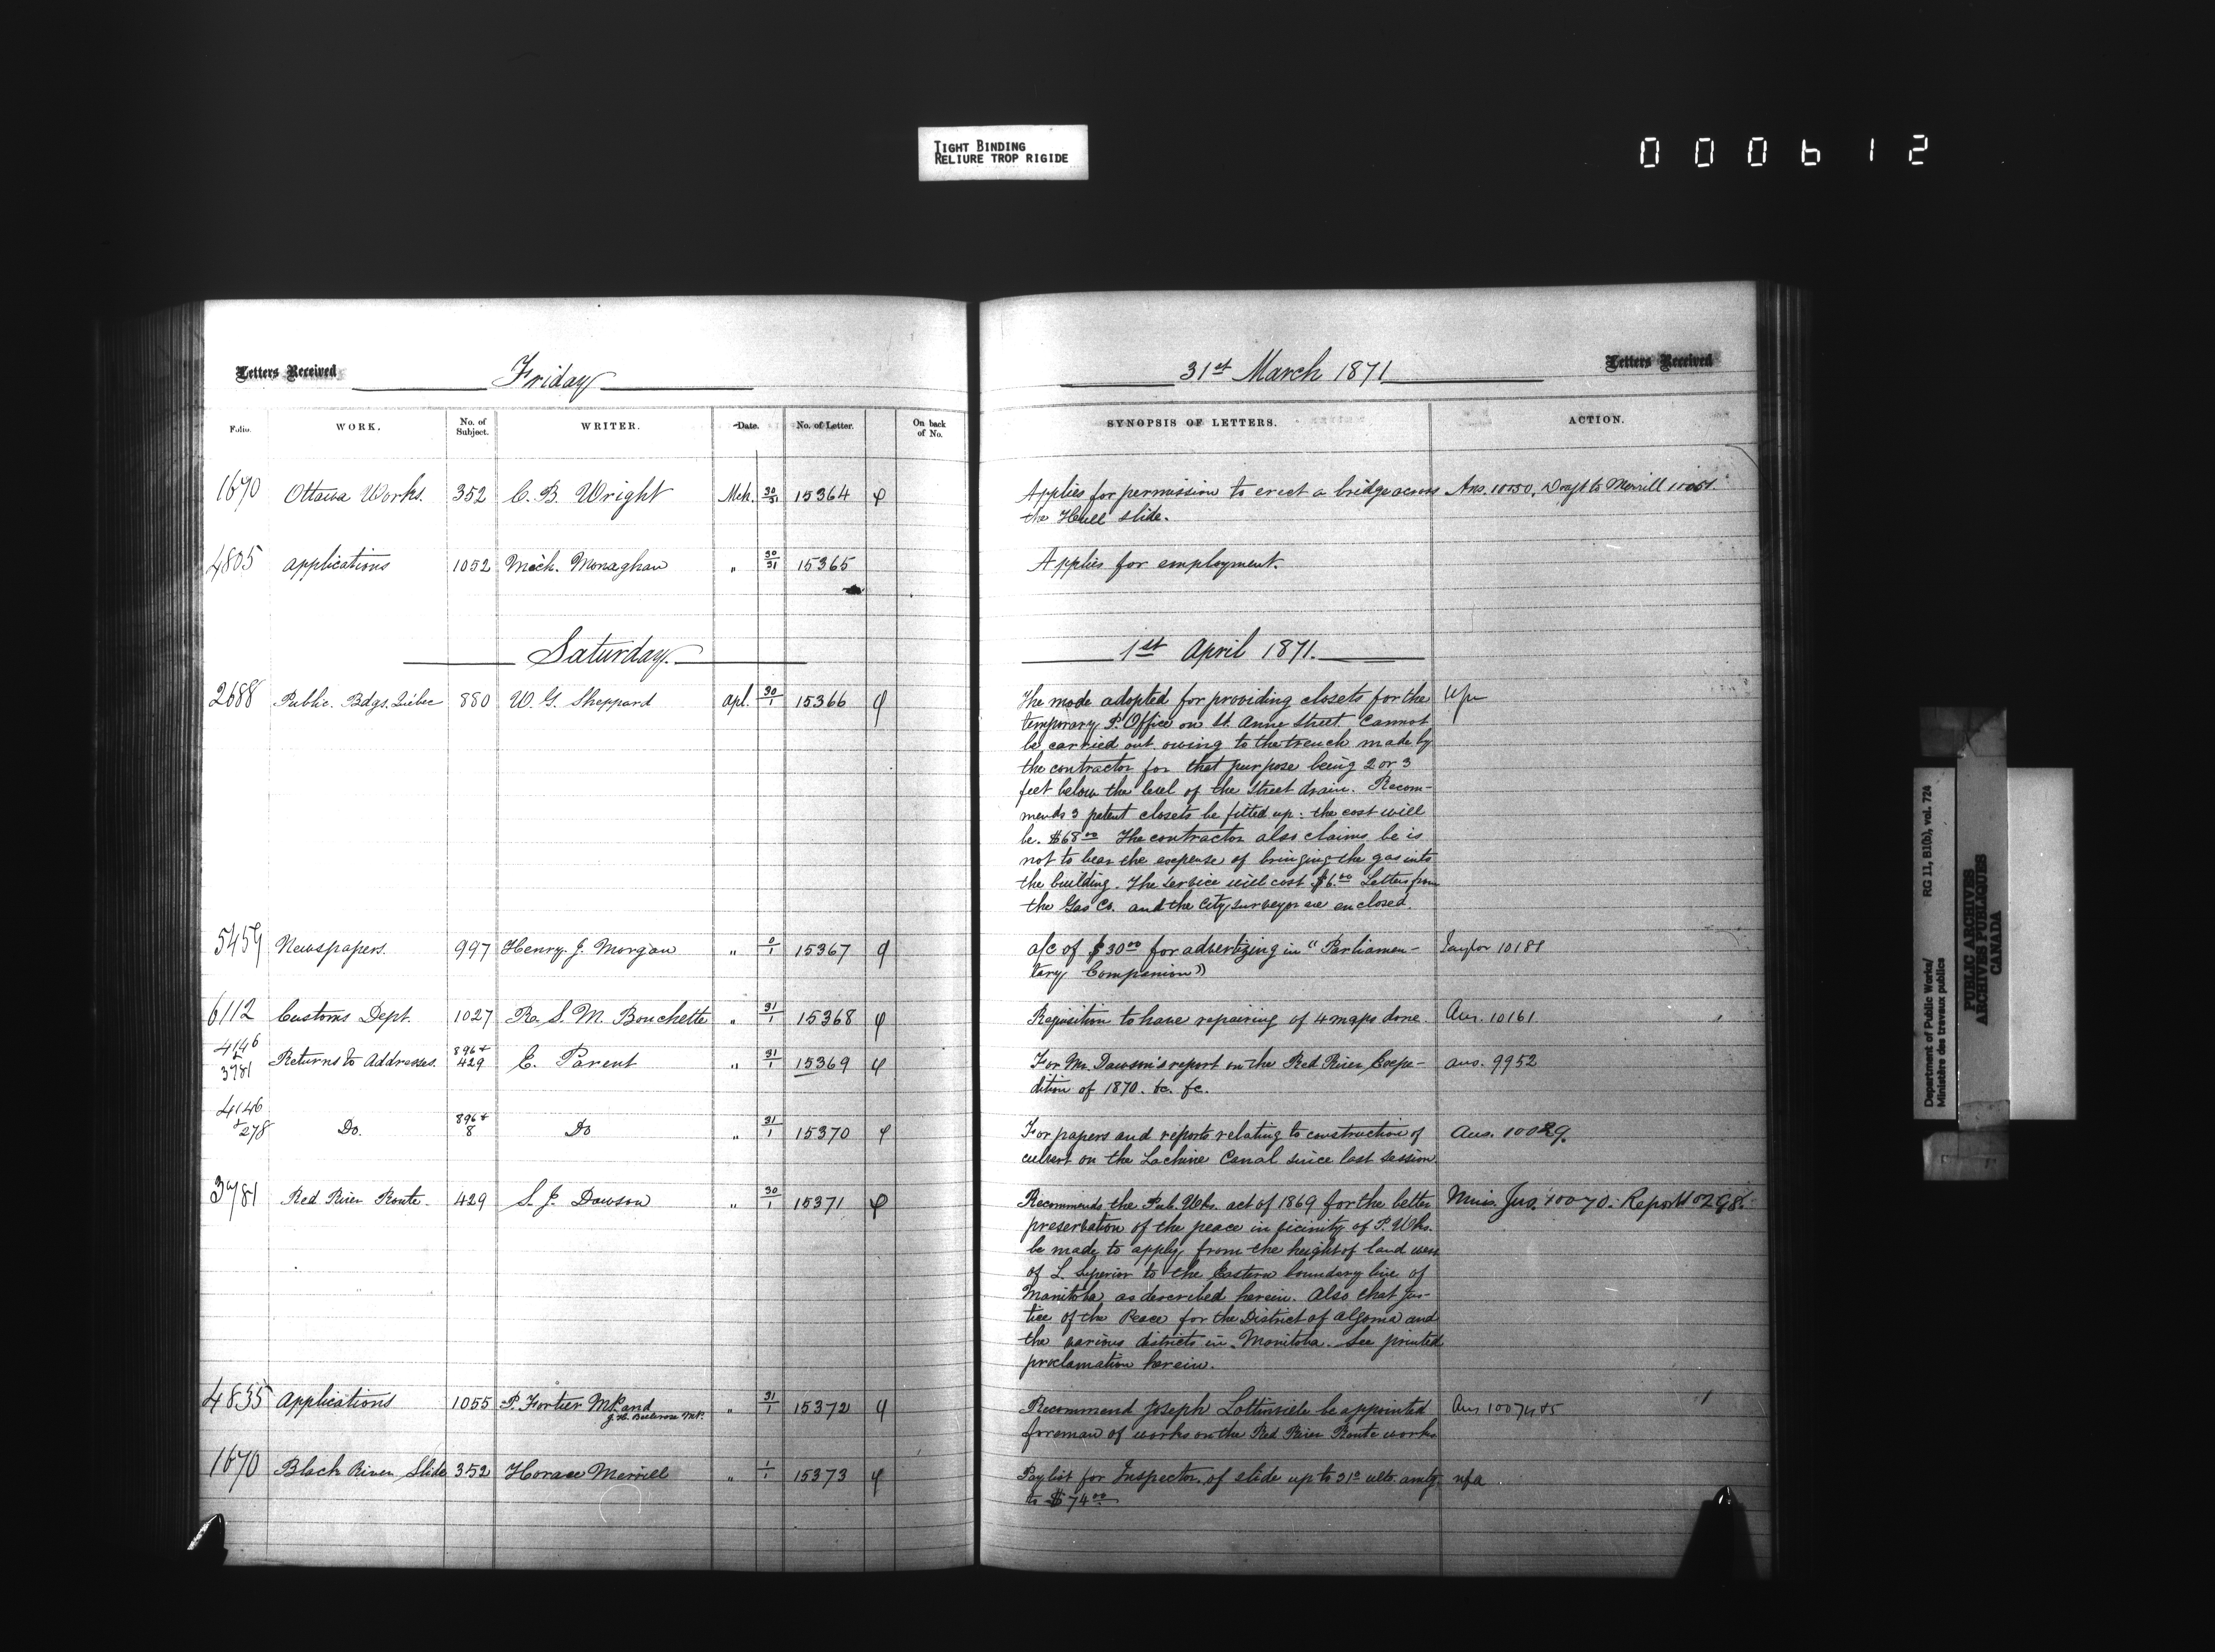 TIGHT BINDING
RELIURE TROP RIGIDE
000612
Letters Received Friday
31st March 1871 Letters Received
Folio. WORK. No. of Subject. WRITER. Date. No. of Letter. On back of No.
SYNOPSIS OF LETTERS. ACTION.
1670 Ottawa Works. 352 C. B. Wright Mch. 30/31 15364 φ
Applies for permission to erect a bridge across Ans. 10050, to Merrill
the Hull slide.
4805 applications 1052 Mich. Monaghan " 30/31 15365
Applies for employment.
Saturday.
1st April 1871.
2688 Public. Bdgs. Quebec 880 W. G. Sheppard Apl. 30/1 15366 φ
The mode adopted for providing closets for the
temporary P. Office on St. Anne Street. Cannot
be carried out owing to the trench made by
the contractor for that purpose being 2 or 3
feet below the level of the Street drain. Recom-
mends 3 patent closets be fitted up: the cost will
be. $68.00 The contractor also claims he is
not to bear the expense of bringing the gas into
the building. The service will cost $6.00 Letters from
the Gas Co. and the City surveyor are enclosed.
5459 Newspapers. 997 Henry. J. Morgan " 0/1 15367 φ
a/c of $30.00 for advertizing in "Parliamen- Taylor 10181
tary Companion"
6112 Customs Dept. 1027 R. S. M. Bouchette " 31/1 15368 φ
Requisition to have repairing of 4 maps done. Ans. 10161.
4146 + 3781 Returns to Addresses. 896 + 429 E. Parent " 31/1 15369 φ
For Mr. Dawson's report on the Red River Expe- ans. 9952
dition of 1870. &c. &c.
4146 + 278 Do. 896 + 8 Do " 31/1 15370 φ
For papers and reports relating to construction of Ans. 10029.
culvert on the Lachine Canal since last session
3781 Red River Route. 429 S. J. Dawson " 30/1 15371 φ
Recommends the Pub. Wks. act of 1869 for the better 10070. Report 10298.
preservation of the peace in vicinity of P. Wks.
be made to apply from the height of land west
of L. Superior to the Eastern boundary line of
Manitoba as described herein. Also that Jus-
tice of the Peace for the District of Algoma and
the various districts in Manitoba. See printed
proclamation herein.
4835 Applications 1055 P. Fortier M.P. and " 31/1 15372 φ
Recommend Joseph Lottinville be appointed
foreman of works on the Red River Route works
1670 Black River Slide 352 Horace Merrill " 1/1 15373 φ
Paylist for Inspector. of slide up to 31st ulto. amtg. nfa
to $74.00
Department of Public Works/ RG 11, B1(b), vol. 724
Ministère des travaux publics
PUBLIC ARCHIVES
ARCHIVES PUBLIQUES
CANADA